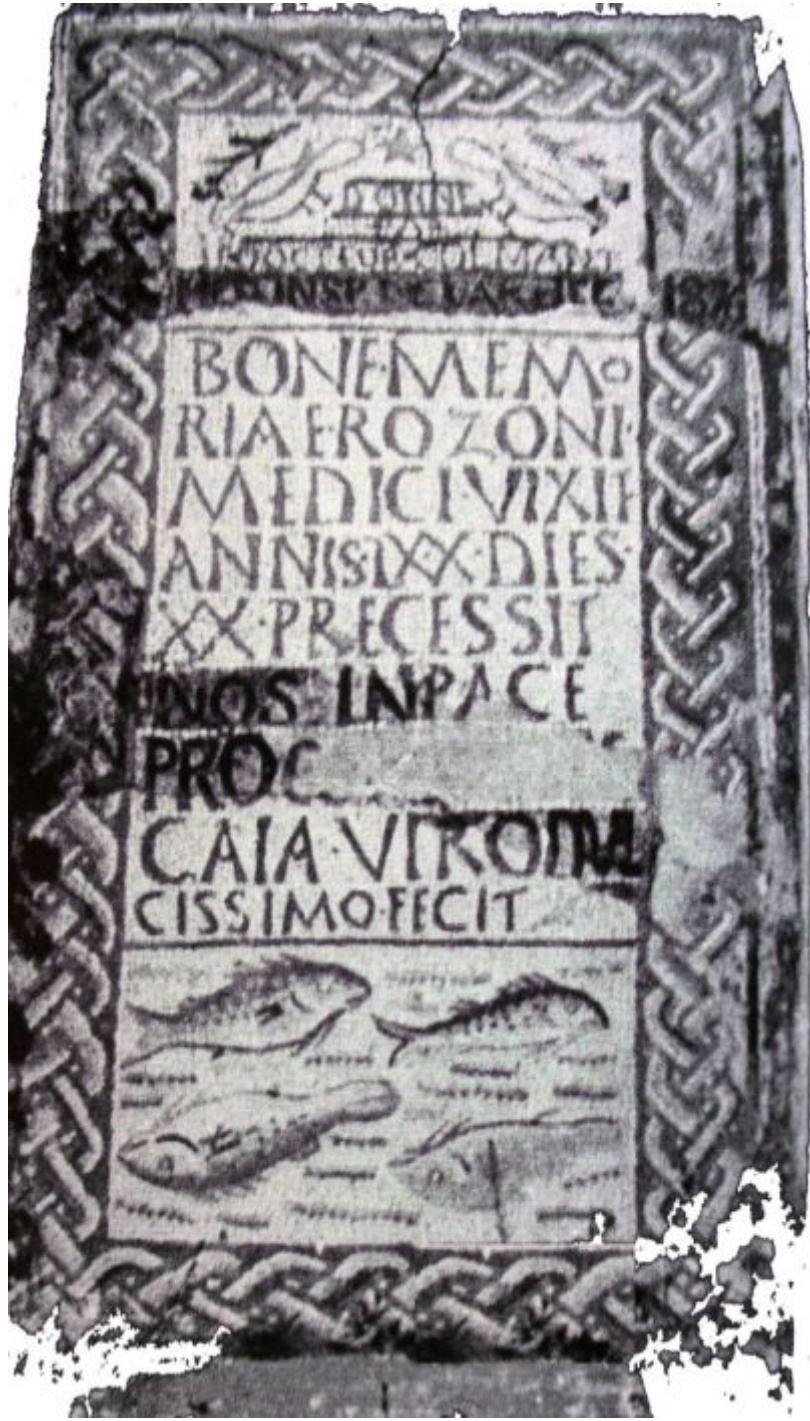 BONE·MEMO
RIAE·ROZONI·
MEDICI·VIXIT
ANNIS·IXX·DIES·
XX·PRECESSIT
NOS INPACE
PROC
CAIA·VIRODUL
CISSIMO·FECIT